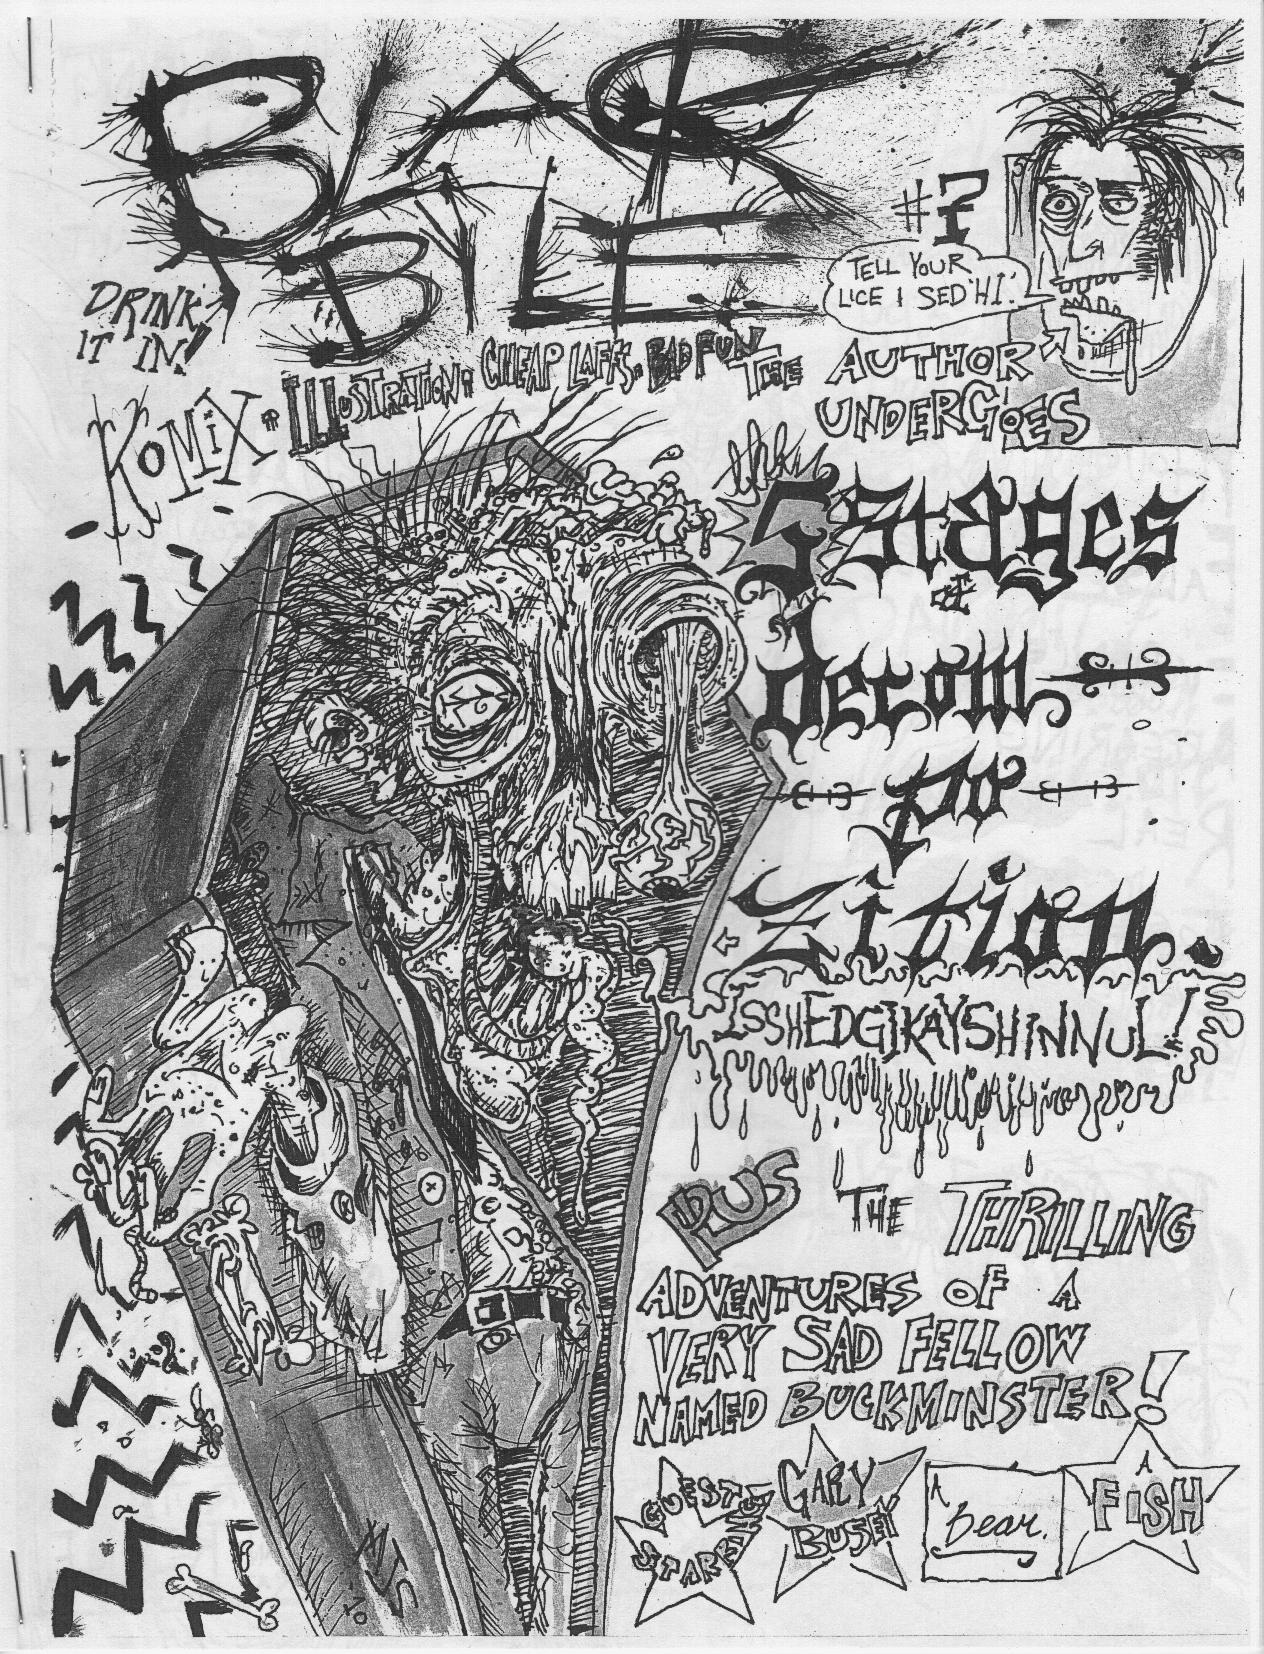 BIAS
BILE
#?
TELL YOUR
LICE I SED "HI."
DRINK
IT IN!
KOMIX. ILLUSTRATION. CHEAP LAFFS. BAD FUN.
THE AUTHOR
UNDERGOES
the
5 Stages
of
Decom
po
zition.
ISSHEDGIKAYSHINNUL!
PLUS THE THRILLING
ADVENTURES OF A
VERY SAD FELLOW
NAMED BUCKMINSTER!
GUEST
STARRING
GARY
BUSEY
A
Bear.
A
FISH